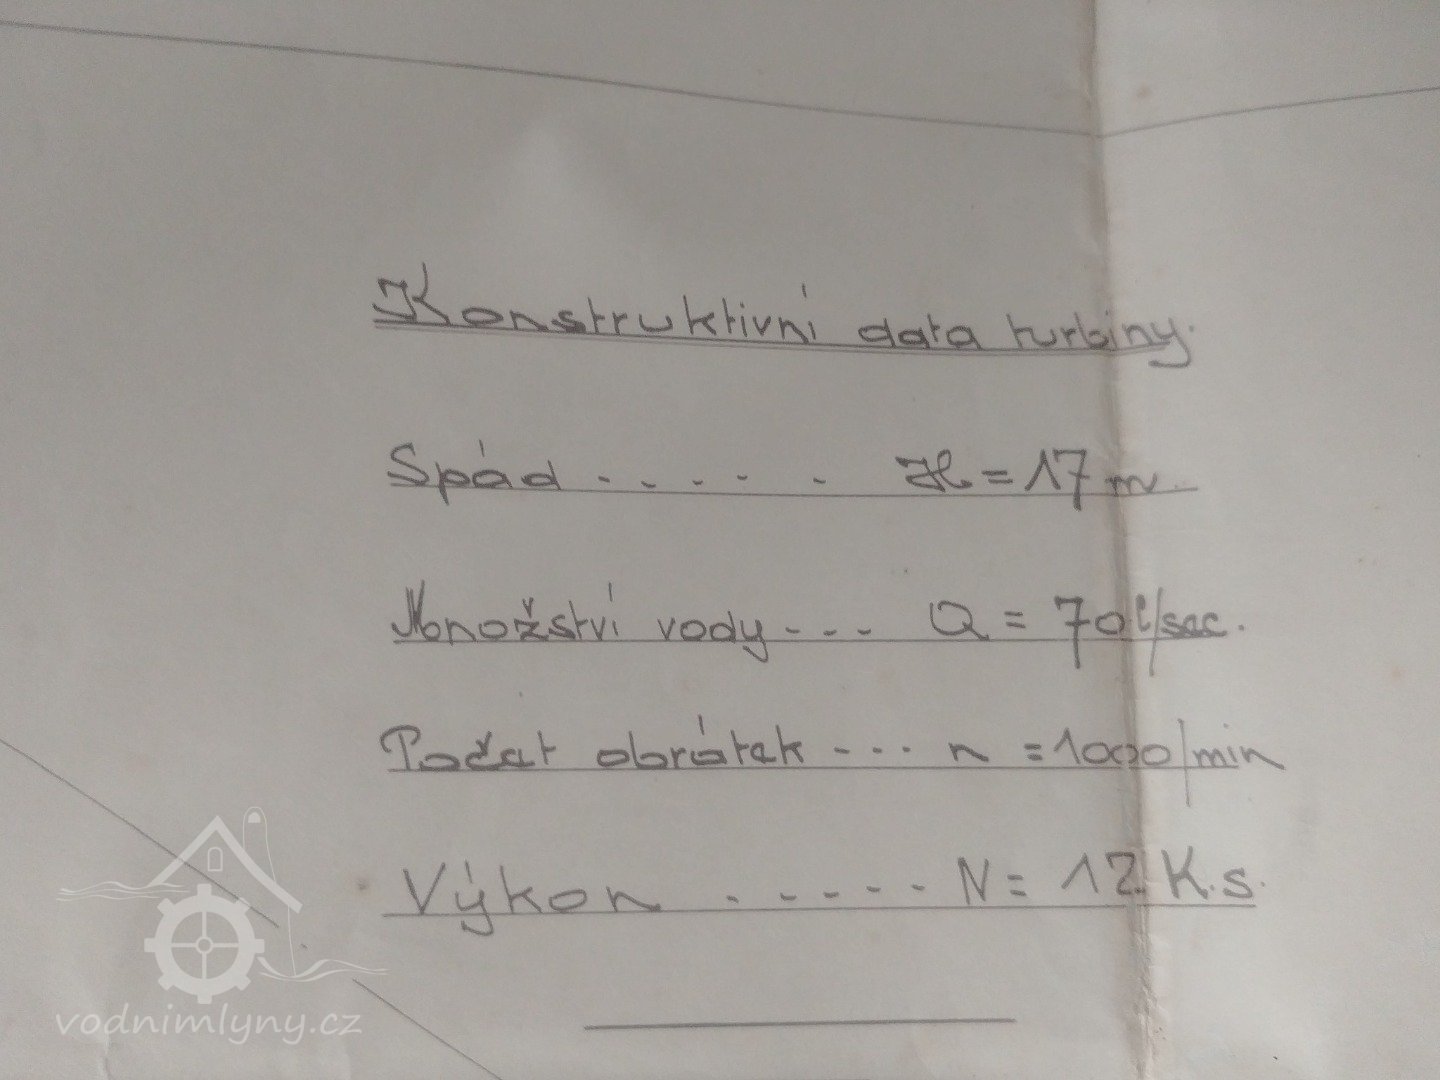 Konstruktivní data turbiny.
Spád - - - - - H = 17 m.
Množství vody - - - Q = 70 l/sec.
Počet obrátek - - - n = 1000/min
Výkon - - - - - N = 12 K.s.
vodnimlyny.cz